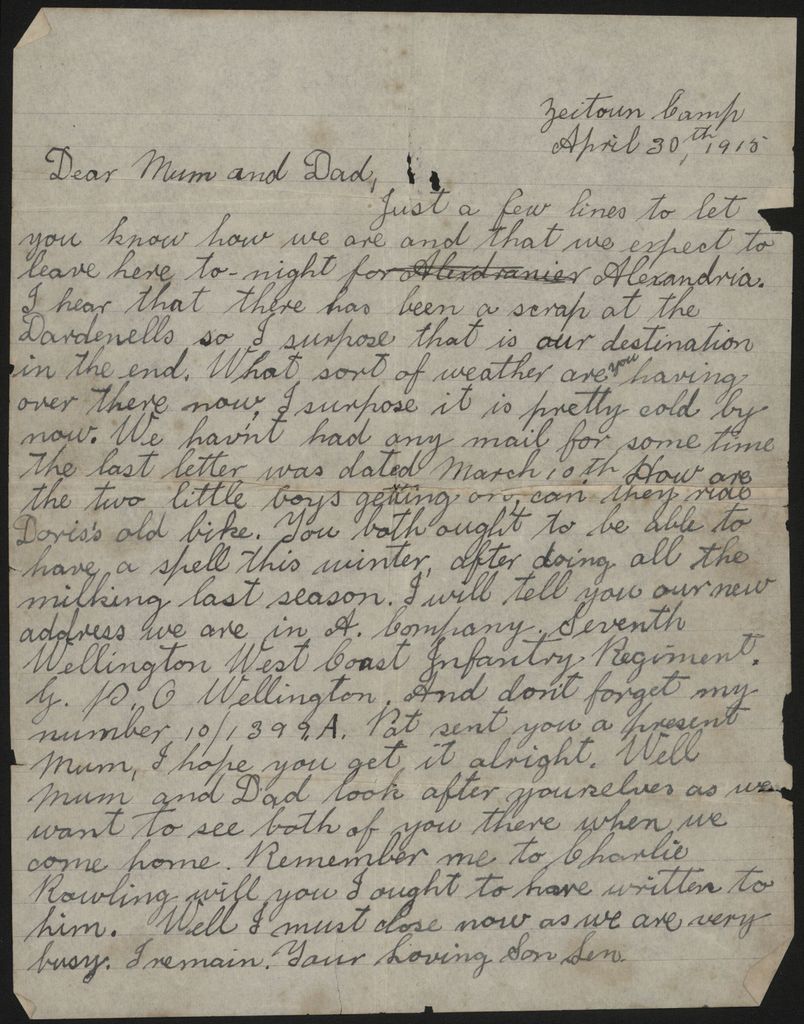 Zeitoun Camp
April 30,th 1915
Dear Mum and Dad,
Just a few lines to let
you know how we are and that we expect to
leave here to-night for Alexdranier Alexandria.
I hear that there has been a scrap at the
Dardenells so I surpose that is our destination
in the end. What sort of weather are you having
over there now, I surpose it is pretty cold by
now. We hav'nt had any mail for some time
the last letter was dated March 10th How are
the two little boys getting on, can they ride
Doris's old bike. You both ought to be able to
have a spell this winter, after doing all the
milking last season. I will tell you our new
address we are in A. Company. Seventh
Wellington West Coast Infantry Regiment.
G. P. O Wellington. And dont forget my
number 10/1399.A. Pat sent you a present
Mum, I hope you get it alright. Well
Mum and Dad look after yourselves as we
want to see both of you there when we
come home. Remember me to Charlie
Rowling will you I ought to have written to
him. Well I must close now as we are very
busy. I remain. Your Loving Son Len.